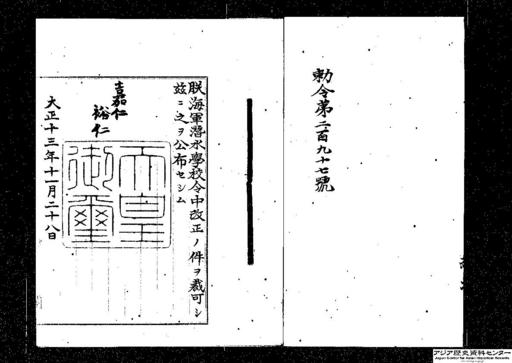 勅令第二百九十七號
朕海軍潛水學校令中改正ノ件ヲ裁可シ
玆ニ之ヲ公布セシム
嘉仁
裕仁
天皇
御璽
大正十三年十一月二十八日
アジア歴史資料センター
Japan Center for Asian Historical Records